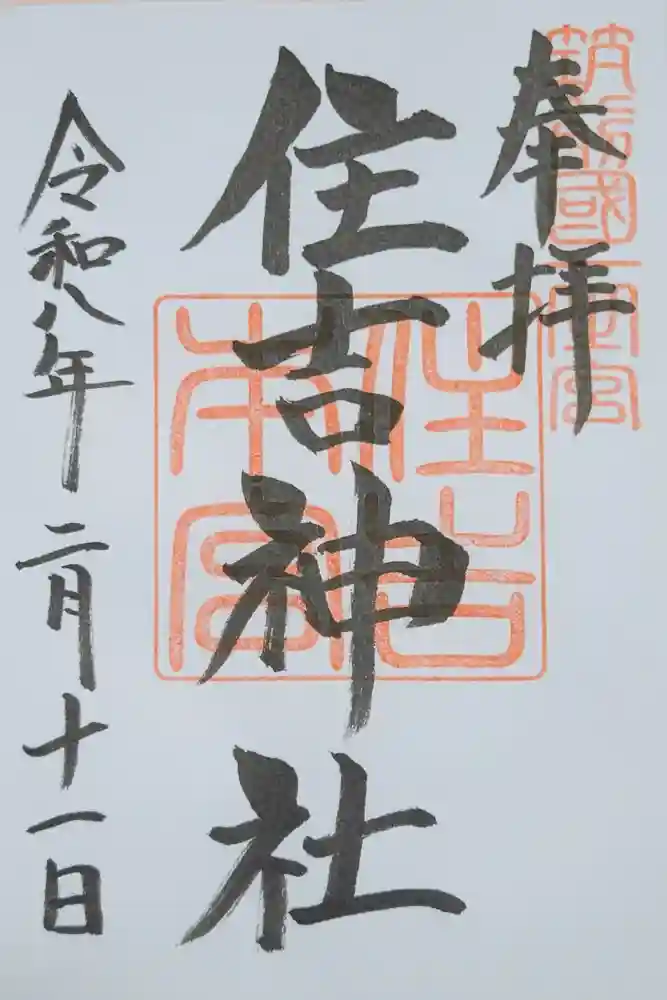 奉拝
筑前國一宮
住吉神社
住吉本宮
令和八年二月十一日